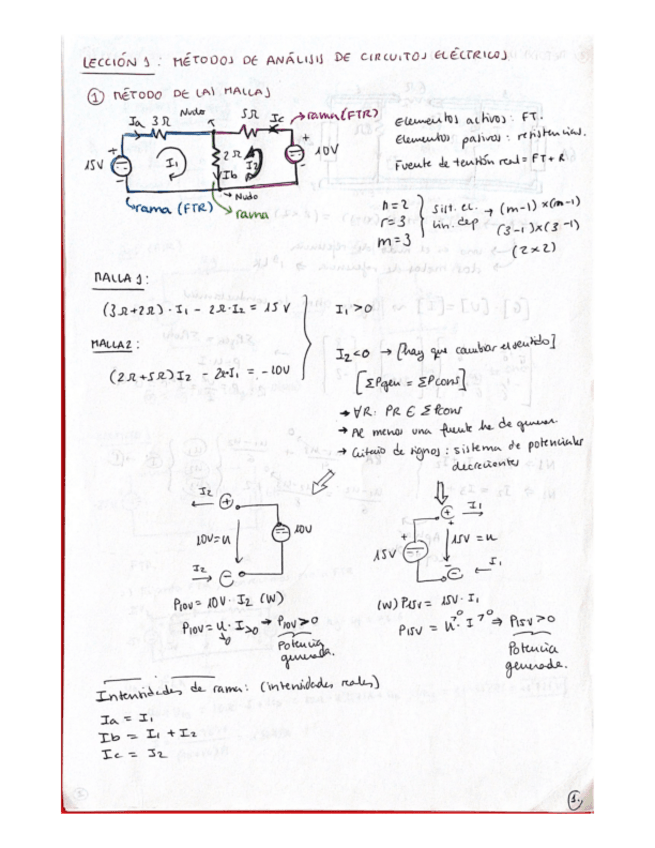 LECCIÓN 1: MÉTODOS DE ANÁLISIS DE CIRCUITOS ELÉCTRICOS
① MÉTODO DE LAS MALLAS
Ia 3Ω Nudo 5Ω Ic → rama (FTR)
15V + - I1 2Ω Ib I2 + - 10V
Nudo
rama (FTR) rama
Elementos activos: FT.
Elementos pasivos: resistencias.
Fuente de tensión real = FT + R
n = 2
r = 3
m = 3
sist. ec. lin. dep → (m-1) x (m-1)
(3-1)x(3-1)
(2x2)
MALLA 1:
(3Ω+2Ω)·I1 - 2Ω·I2 = 15V
MALLA 2:
(2Ω+5Ω)I2 - 2·I1 = -10V
I1>0
I2<0 → [hay que cambiar el sentido]
[ΣPgen = ΣPcons]
→ ∀R: PR ∈ ΣPcons
→ Al menos una fuente ha de generar.
→ Criterio de signos: sistema de potenciales
decrecientes
I2 +
10V=U 10V
I2 -
P10V = 10V·I2 (W)
P10V = U·I>0 → P10V>0
>0
Potencia
generada.
+ I1
15V + - 15V = U
- I1
(W) P15V = 15V·I1
P15V = U>0·I>0 ⇒ P15V>0
Potencia
generada.
Intensidades de rama: (intensidades reales)
Ia = I1
Ib = I1 + I2
Ic = I2
1.